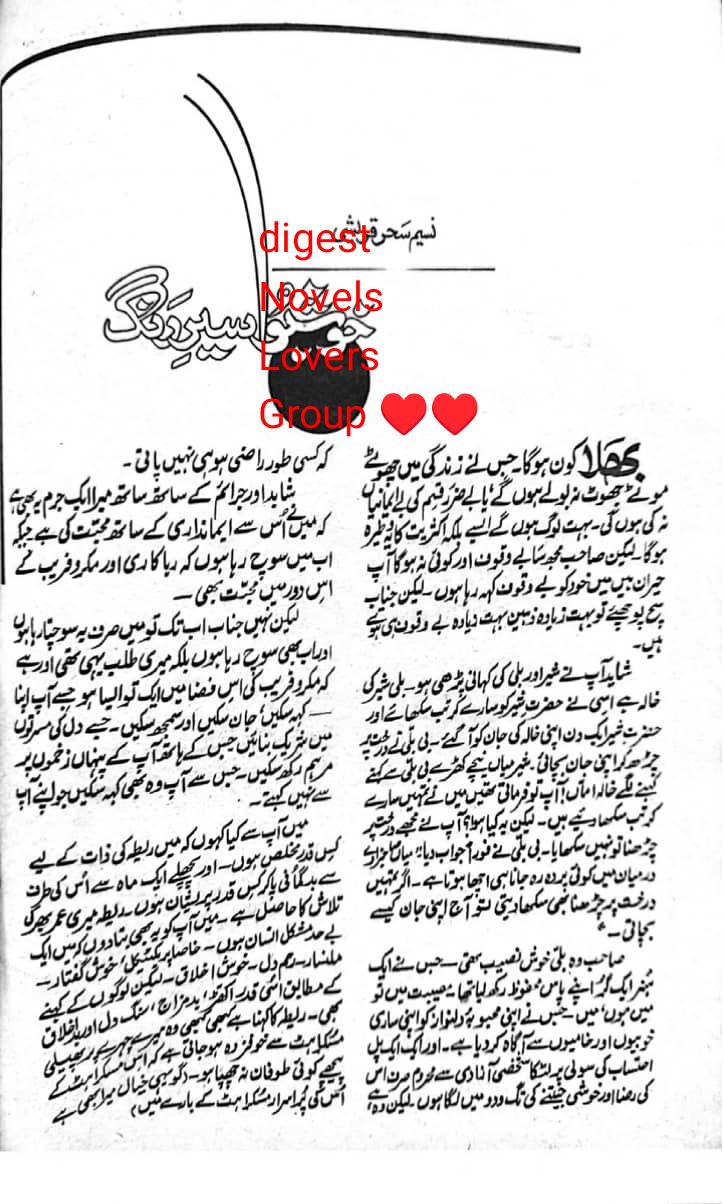 نسیم سحر قریشی
digest
Novels
Lovers
Group ❤️❤️
خوشبو اسیرِ رنگ
بھلا کون ہوگا۔ جس نے زندگی میں چھوٹے
موٹے جھوٹ نہ بولے ہوں گے یا بے ضرر قسم کی بے ایمانیاں
نہ کی ہوں گی۔ بہت لوگ ہوں گے ایسے بلکہ اکثریت کا یہ وطیرہ
ہوگا۔ لیکن صاحب مجھ سا بے وقوف اور کوئی نہ ہوگا آپ
حیران ہیں میں خود کو بے وقوف کہہ رہا ہوں۔ لیکن جناب
سچ پوچھیے تو بہت زیادہ ذہین بہت زیادہ بے وقوف ہی ہوتے
ہیں۔
شاید آپ نے شیر اور بلی کی کہانی پڑھی ہو۔ بلی شیر کی
خالہ ہے اسی نے حضرتِ شیر کو سارے کرتب سکھائے اور
حضرتِ شیر ایک دن اپنی خالہ کی جان کو آ گئے۔ بی بلی نے درخت پر
چڑھ کر اپنی جان بچائی۔ شیر میاں نیچے کھڑے بی بلی سے کہنے
لگے خالہ اماں! آپ تو فرماتی تھیں میں نے تمہیں سارے
کرتب سکھا دیئے ہیں۔ لیکن یہ کیا ہوا؟ آپ نے مجھے درخت پر
چڑھنا تو نہیں سکھایا۔ بی بلی نے فوراً جواب دیا: میاں
درمیان میں کوئی پردہ رہ جانا ہی اچھا ہوتا ہے۔ اگر تمہیں
درخت پر چڑھنا بھی سکھا دیتی تو آج اپنی جان کیسے
بچاتی۔"
صاحب وہ بلی خوش نصیب تھی۔ جس نے ایک
ہنر ایک گُر اپنے پاس محفوظ رکھ لیا تھا۔ مصیبت میں تو
میں ہوں' میں۔ جس نے اپنی محبوبہ دلنواز کو اپنی ساری
خوبیوں اور خامیوں سے آگاہ کر دیا ہے۔ اور ایک ایک پل
احتساب کی سولی پر لٹکا شخصی آزادی سے محروم صرف اس
کی رضا اور خوشی جیتنے کی تگ و دو میں لگا ہوں۔ لیکن وہ ہے
کہ کسی طور راضی ہو ہی نہیں پاتی۔
شاید اور جرائم کے ساتھ ساتھ میرا ایک جرم یہ بھی ہے
کہ میں نے اُس سے ایمانداری کے ساتھ محبت کی ہے جبکہ
اب میں سوچ رہا ہوں کہ ریاکاری اور مکر و فریب کے
اس دور میں محبت بھی۔
لیکن نہیں جناب اب تک تو میں صرف یہ سوچتا رہا ہوں
اور اب بھی سوچ رہا ہوں بلکہ میری طلب یہی تھی اور ہے
کہ مکر و فریب کی اس فضا میں ایک تو ایسا ہو جسے آپ اپنا
— کہہ سکیں' جان سکیں اور سمجھ سکیں۔ جسے دل کی مسرتوں
میں شریک بنائیں جس کے ہاتھ آپ کے پنہاں زخموں پر
مرہم رکھ سکیں۔ جس سے آپ وہ بھی کہہ سکیں جو اپنے آپ
سے نہیں کہتے۔
میں آپ سے کیا کہوں کہ میں ربیطہ کی ذات کے لیے
کس قدر مخلص ہوں۔ اور پچھلے ایک ماہ سے اُس کی طرف
سے بدگمانی پا کر کس قدر پریشان ہوں۔ ربیطہ میری عمر بھر کی
تلاش کا حاصل ہے۔ میں آپ کو یہ بھی بتا دوں کہ میں ایک
بے حد مشکل انسان ہوں۔ خاصا پریکٹیکل' خوش گفتار۔
ملنسار۔ رحم دل۔ خوش اخلاق۔ لیکن لوگوں کے کہنے
کے مطابق اسی قدر اکھڑ' بد مزاج' سنگ دل اور بد اخلاق
بھی۔ ربیطہ کا کہنا ہے کبھی کبھی وہ میرے چہرے پر پھیلی
مسکراہٹ سے خوفزدہ ہو جاتی ہے کہ اس مسکراہٹ کے
پیچھے کوئی طوفان نہ چھپا ہو۔ گو یہی خیال میرا بھی ہے
اُس کی پُراسرار مسکراہٹ کے بارے میں،